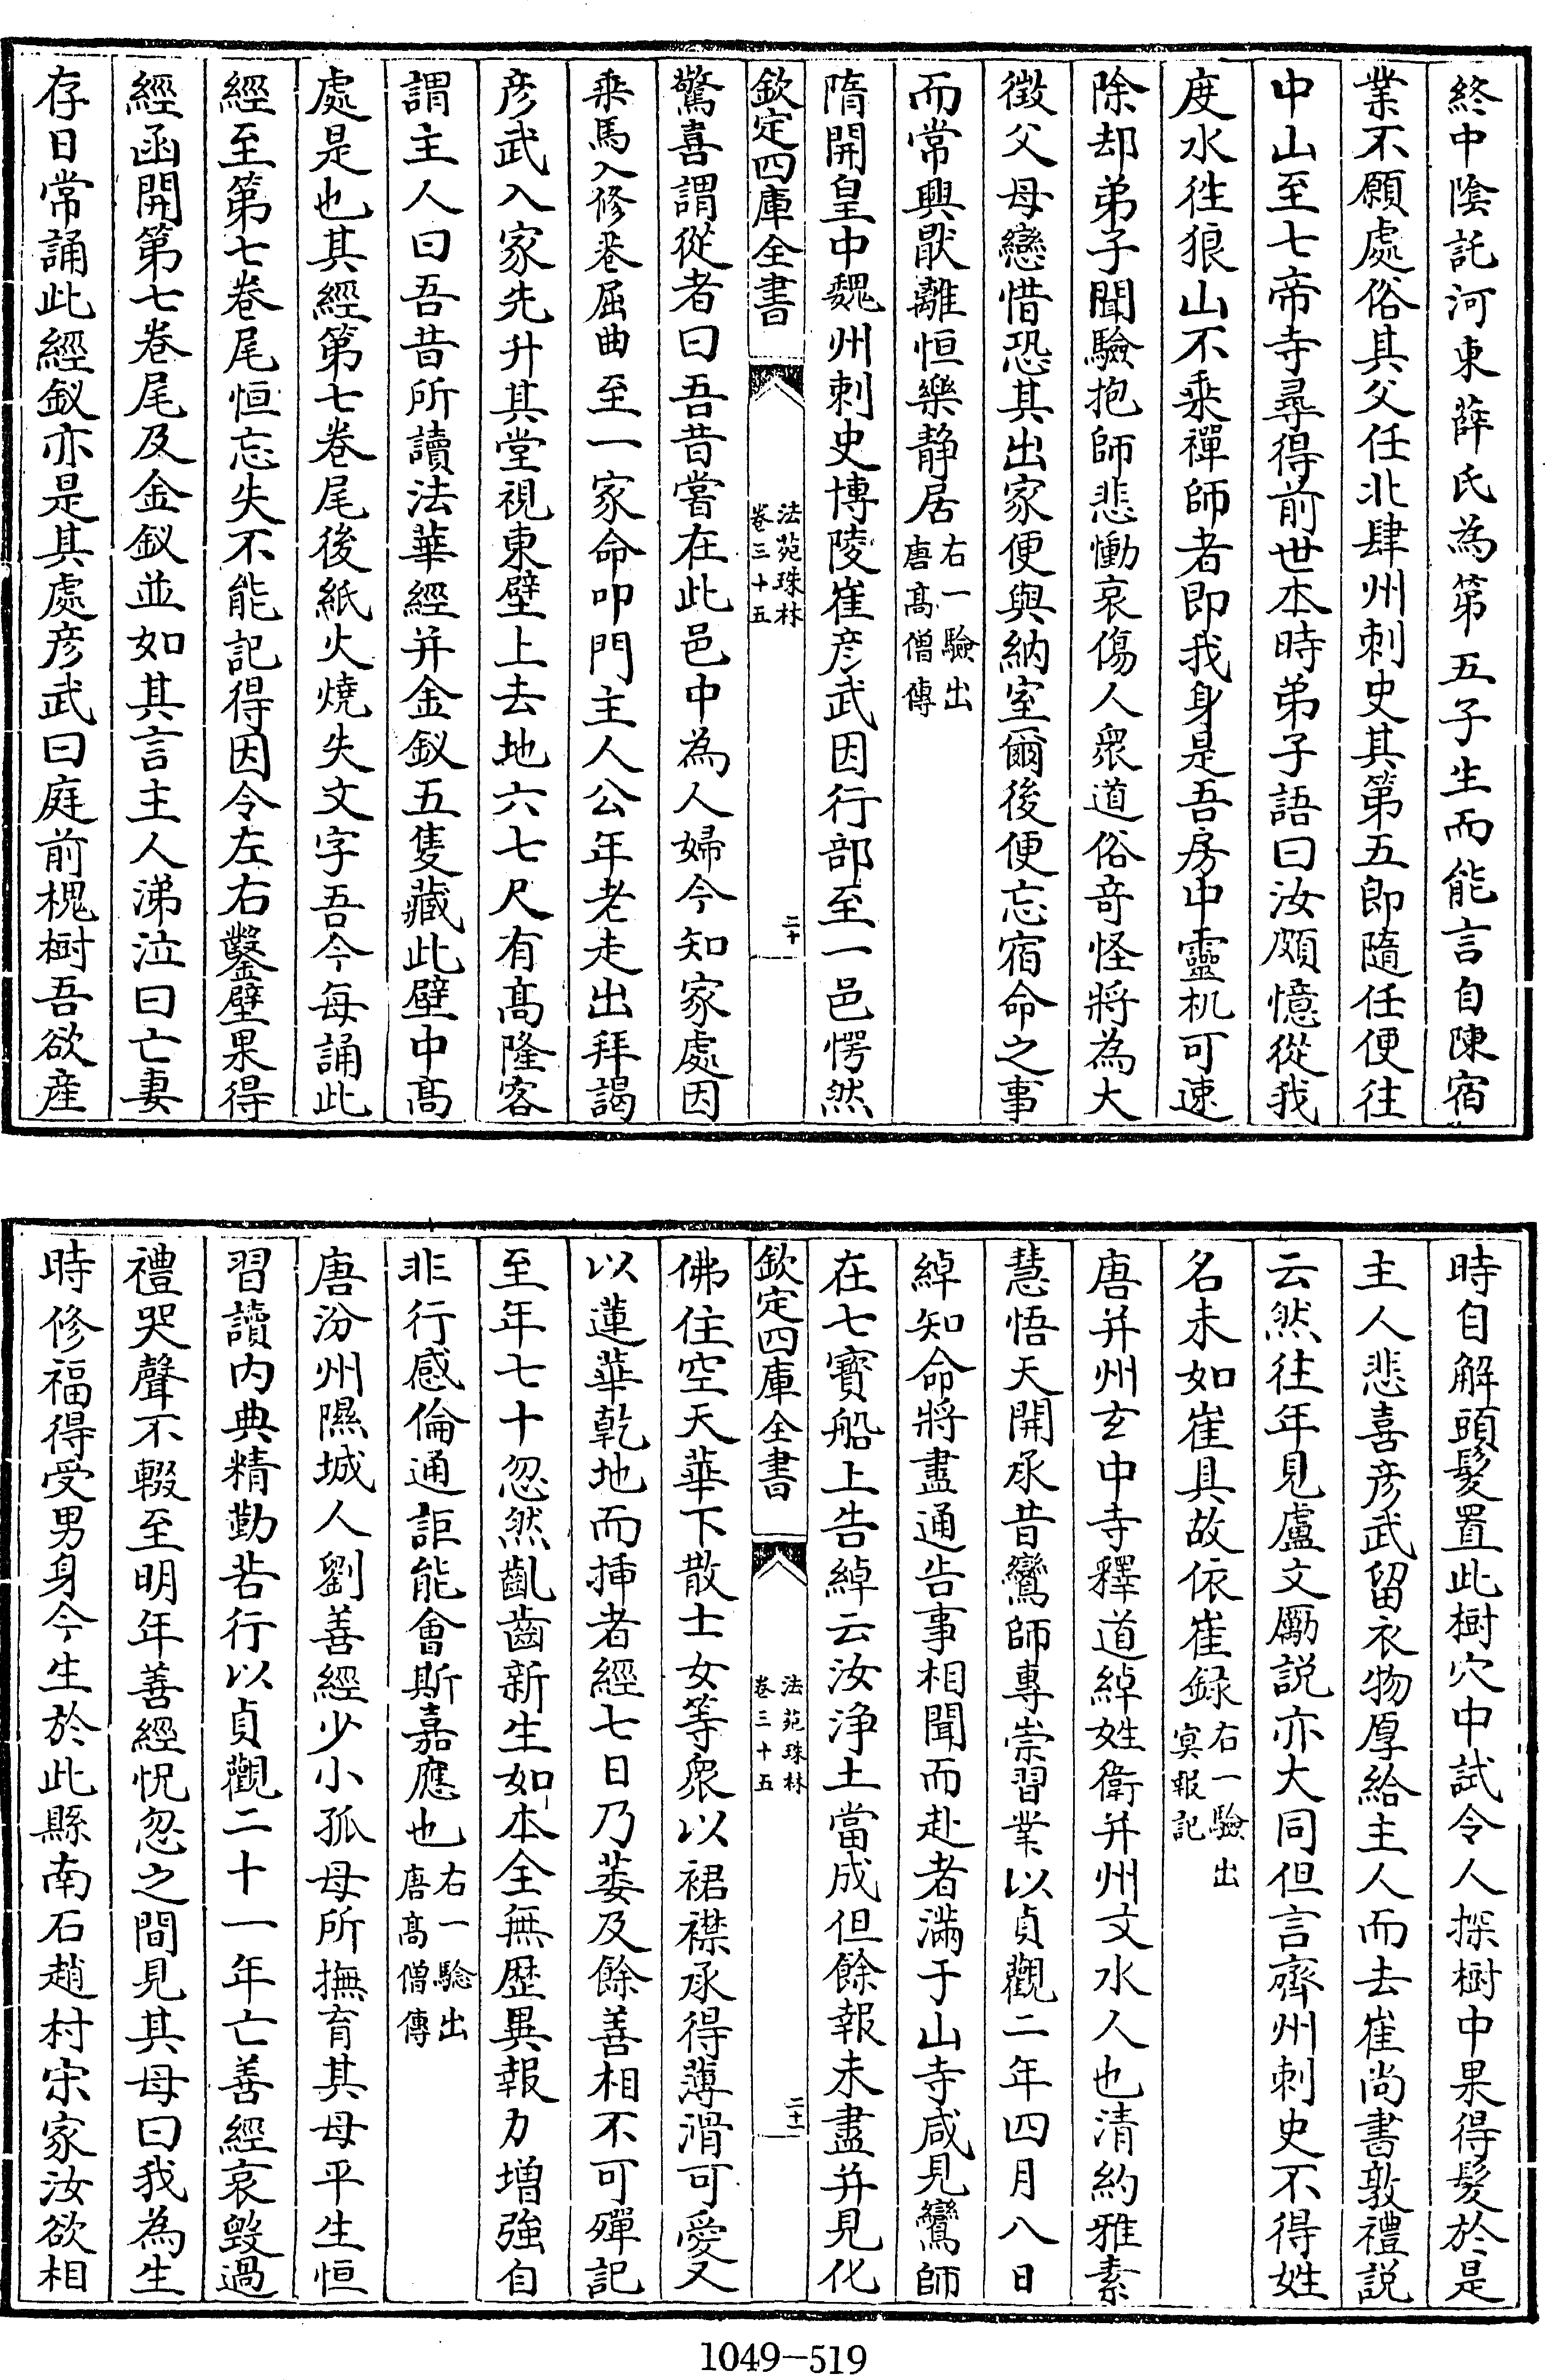 終中陰託河東薛氏為第五子生而能言自陳宿
業不願處俗其父任北肆州刺史其第五郎隨任便往
中山至七帝寺尋得前世本時弟子語曰汝頗憶從我
度水往狼山不乘禪師者即我身是吾房中靈机可速
除却弟子聞驗抱師悲慟哀傷人衆道俗竒怪將為大
徴父母戀惜恐其出家便與納室爾後便忘宿命之事
而常興猒離恒樂静居右一驗出唐髙僧傳
隋開皇中魏州刺史博陵崔彦武因行部至一邑愕然
欽定四庫全書
法苑珠林
卷三十五
二十
驚喜謂從者曰吾昔嘗在此邑中為人婦今知家處因
乘馬入修巷屈曲至一家命叩門主人公年老走出拜謁
彦武入家先升其堂視東壁上去地六七尺有髙隆客
謂主人曰吾昔所讀法華經并金釵五隻藏此壁中髙
處是也其經第七卷尾後紙火燒失文字吾今每誦此
經至第七卷尾恒忘失不能記得因令左右鑿壁果得
經函開第七卷尾及金釵並如其言主人涕泣曰亡妻
存日常誦此經釵亦是其處彦武曰庭前槐樹吾欲産
時自解頭髮置此樹穴中試令人探樹中果得髮於是
主人悲喜彦武留衣物厚給主人而去崔尚書敦禮説
云然往年見盧文勵説亦大同但言齊州刺史不得姓
名未如崔具故依崔録右一驗出冥報記
唐并州玄中寺釋道綽姓衛并州文水人也清約雅素
慧悟天開承昔鸞師專崇習業以貞觀二年四月八日
綽知命將盡通告事相聞而赴者滿于山寺咸見鸞師
在七寳船上告綽云汝浄土當成但餘報未盡并見化
欽定四庫全書
法苑珠林
卷三十五
二十一
佛住空天華下散士女等衆以裙襟承得薄滑可愛又
以蓮華乾地而揷者經七日乃萎及餘善相不可殫記
至年七十忽然齓齒新生如本全無歴異報力増強自
非行感倫通詎能會斯嘉應也右一騐出唐髙僧傳
唐汾州隰城人劉善經少小孤母所撫育其母平生恒
習讀内典精勤苦行以貞觀二十一年亡善經哀毁過
禮哭聲不輟至明年善經怳忽之間見其母曰我為生
時修福得受男身今生於此縣南石趙村宋家汝欲相
1049-519